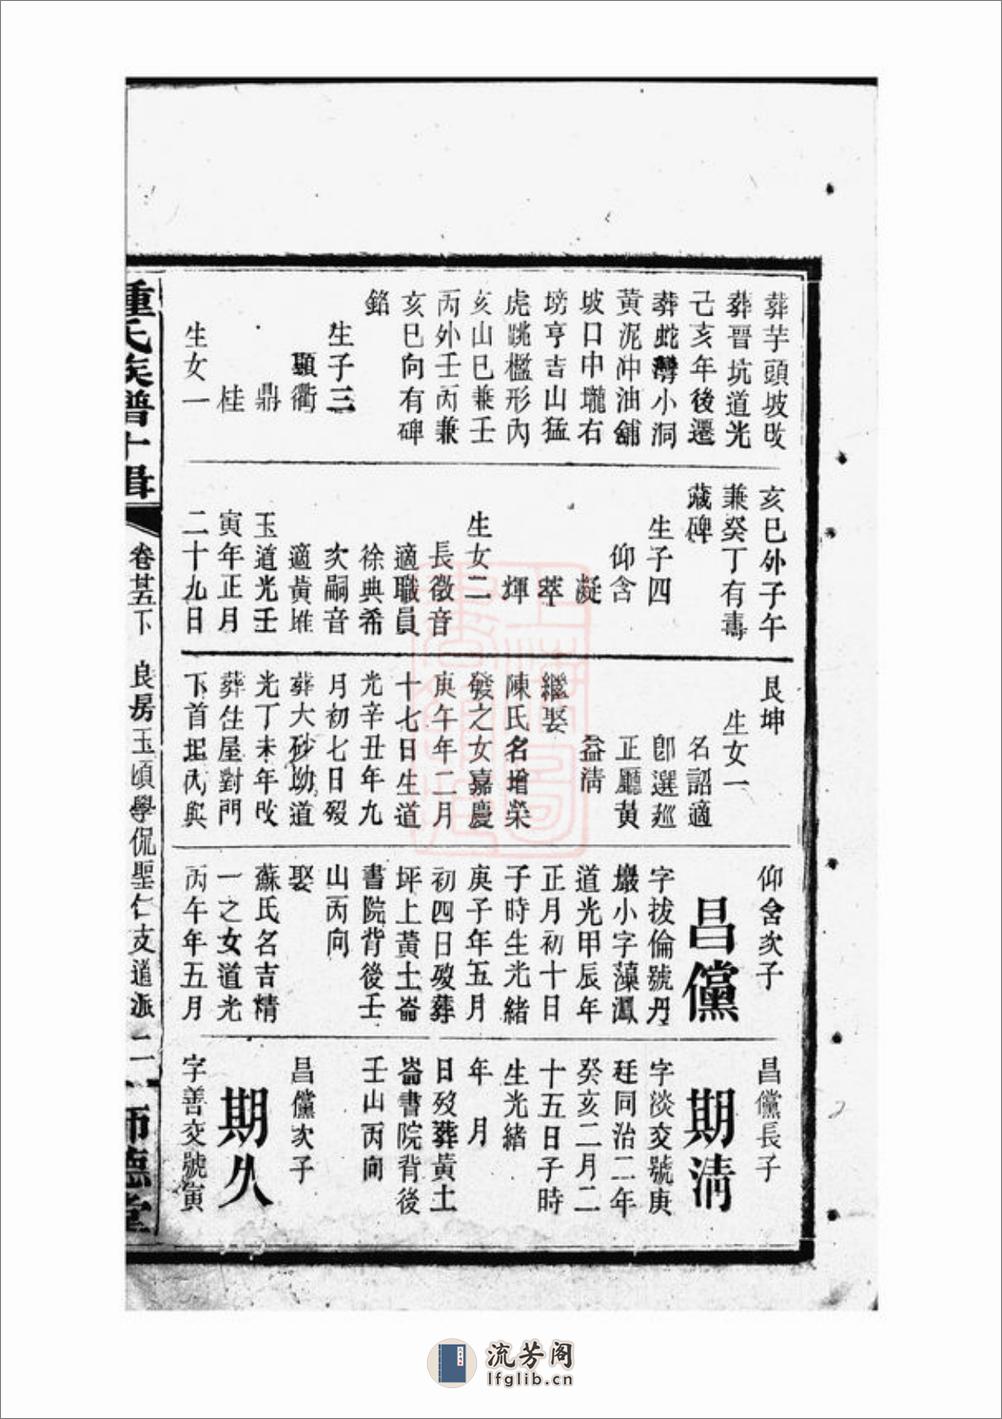 葬芋頭坡改
葬晉坑道光
己亥年後遷
葬虵灣小洞
黃泥冲油舖
坡口申壠右
塝亨吉山猛
虎跳檻形內
亥山巳兼壬
丙外壬丙兼
亥巳向有碑
銘
生子三
顯衢
鼎
桂
生女一
亥巳外子午
兼癸丁有壽
藏碑
生子四
仰含
凝
萃
輝
生女二
長徵音
適職員
徐典希
次嗣音
適黃堆
玉道光壬
寅年正月
二十九日
艮坤
生女一
名詔適
卽選廵
正廳黃
益清
繼娶
陳氏名增榮
發之女嘉慶
庚午年二月
十七日生道
光辛丑年九
月初七日歿
葬大砂坳道
光丁未年改
葬住屋對門
下首 內與
仰含次子
昌儻
字拔倫號丹
巖小字藻鳳
道光甲辰年
正月初十日
子時生光緒
庚子年五月
初四日歿葬
坪上黃土崙
書院背後壬
山丙向
娶
蘇氏名吉精
一之女道光
丙午年五月
昌儻長子
期清
字淡交號庚
廷同治二年
癸亥二月二
十五日子時
生光緒
年 月
日歿葬黃土
崙書院背後
壬山丙向
昌儻次子
期久
字善交號寅
氏族譜十輯
卷廿五下
良房玉頃學侃聖仁支道派
二
師德堂
流芳阁
lfglib.cn